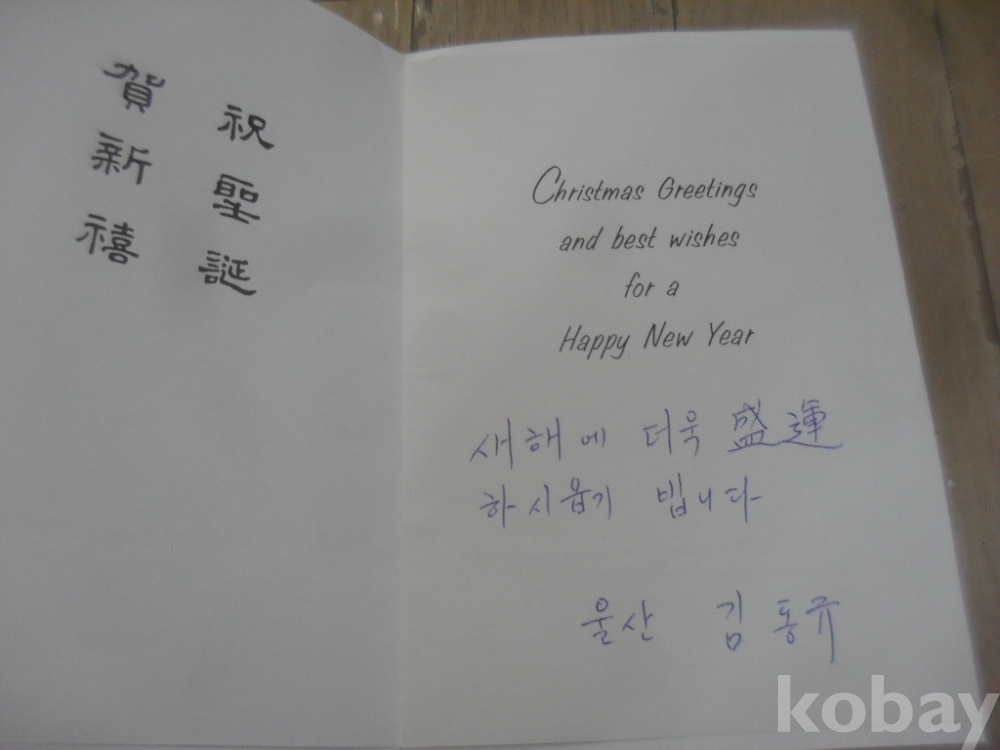 祝聖誕
賀新禧
Christmas Greetings
and best wishes
for a
Happy New Year
새해에 더욱 盛運
하시옵기 빕니다
울산 김동규
kobay